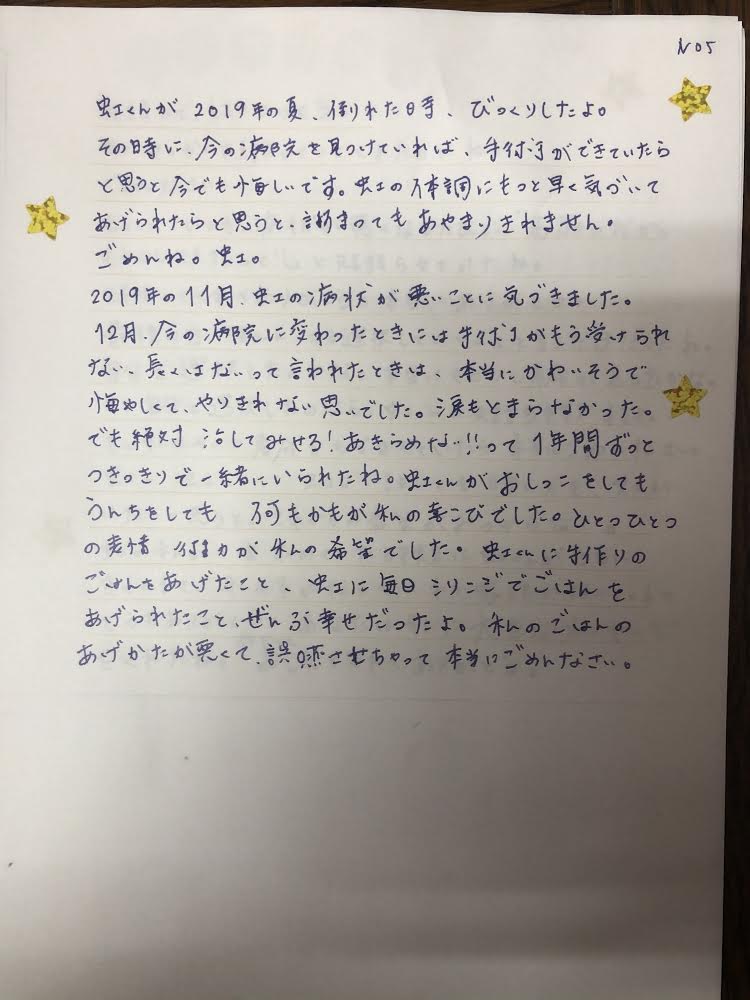 NO5
虹くんが 2019年の夏、倒れた時、びっくりしたよ。
その時に、今の病院を見つけていれば、手術ができていたら
と思うと今でも悔しいです。虹の体調にもっと早く気づいて
あげられたらと思うと、謝まってもあやまりきれません。
ごめんね。虹。
2019年の11月、虹の病状が悪いことに気づきました。
12月、今の病院に変わったときには手術がもう受けられ
ない、長くはないって言われたときは、本当にかわいそうで
悔やしくて、やりきれない思いでした。涙もとまらなかった。
でも絶対 治してみせる!あきらめない!!って 1年間ずっと
つきっきりで一緒にいられたね。虹くんがおしっこをしても
うんちをしても 何もかもが私の喜こびでした。ひとつひとつ
の表情 仕草が私の希望でした。虹くんに手作りの
ごはんをあげたこと、虹に毎日シリンジでごはんを
あげられたこと、ぜんぶ幸せだったよ。私のごはんの
あげかたが悪くて、誤嚥させちゃって本当にごめんなさい。